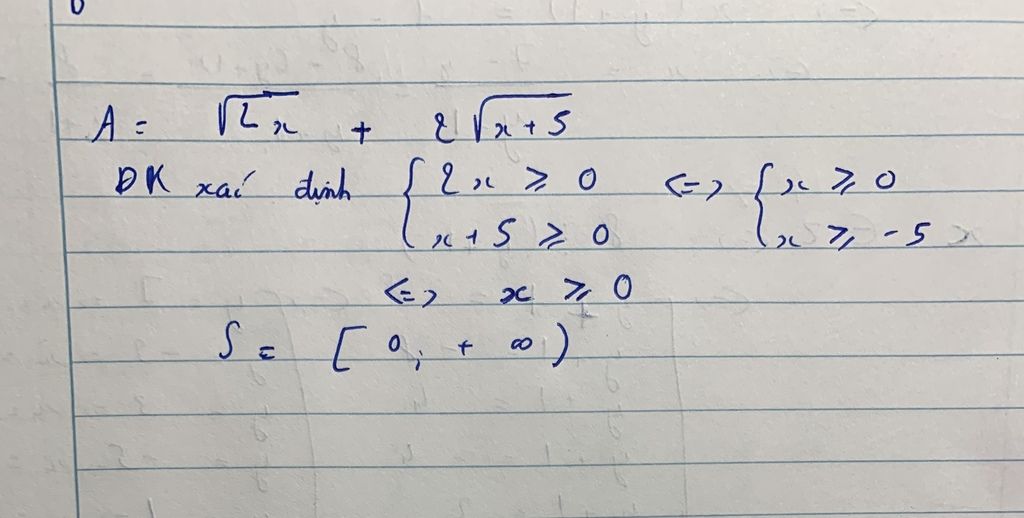 A = √2x + 2√x+5
ĐK xác định { 2x ≥ 0 <=> { x ≥ 0
x+5 ≥ 0 x ≥ -5
<=> x ≥ 0
S = [ 0; + ∞ )